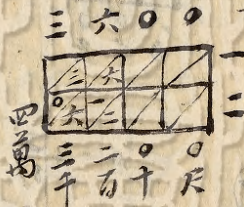 三 六 〇 〇
一
三 六
二
〇 六 一 二
四萬
三千 二百 〇十 〇尺